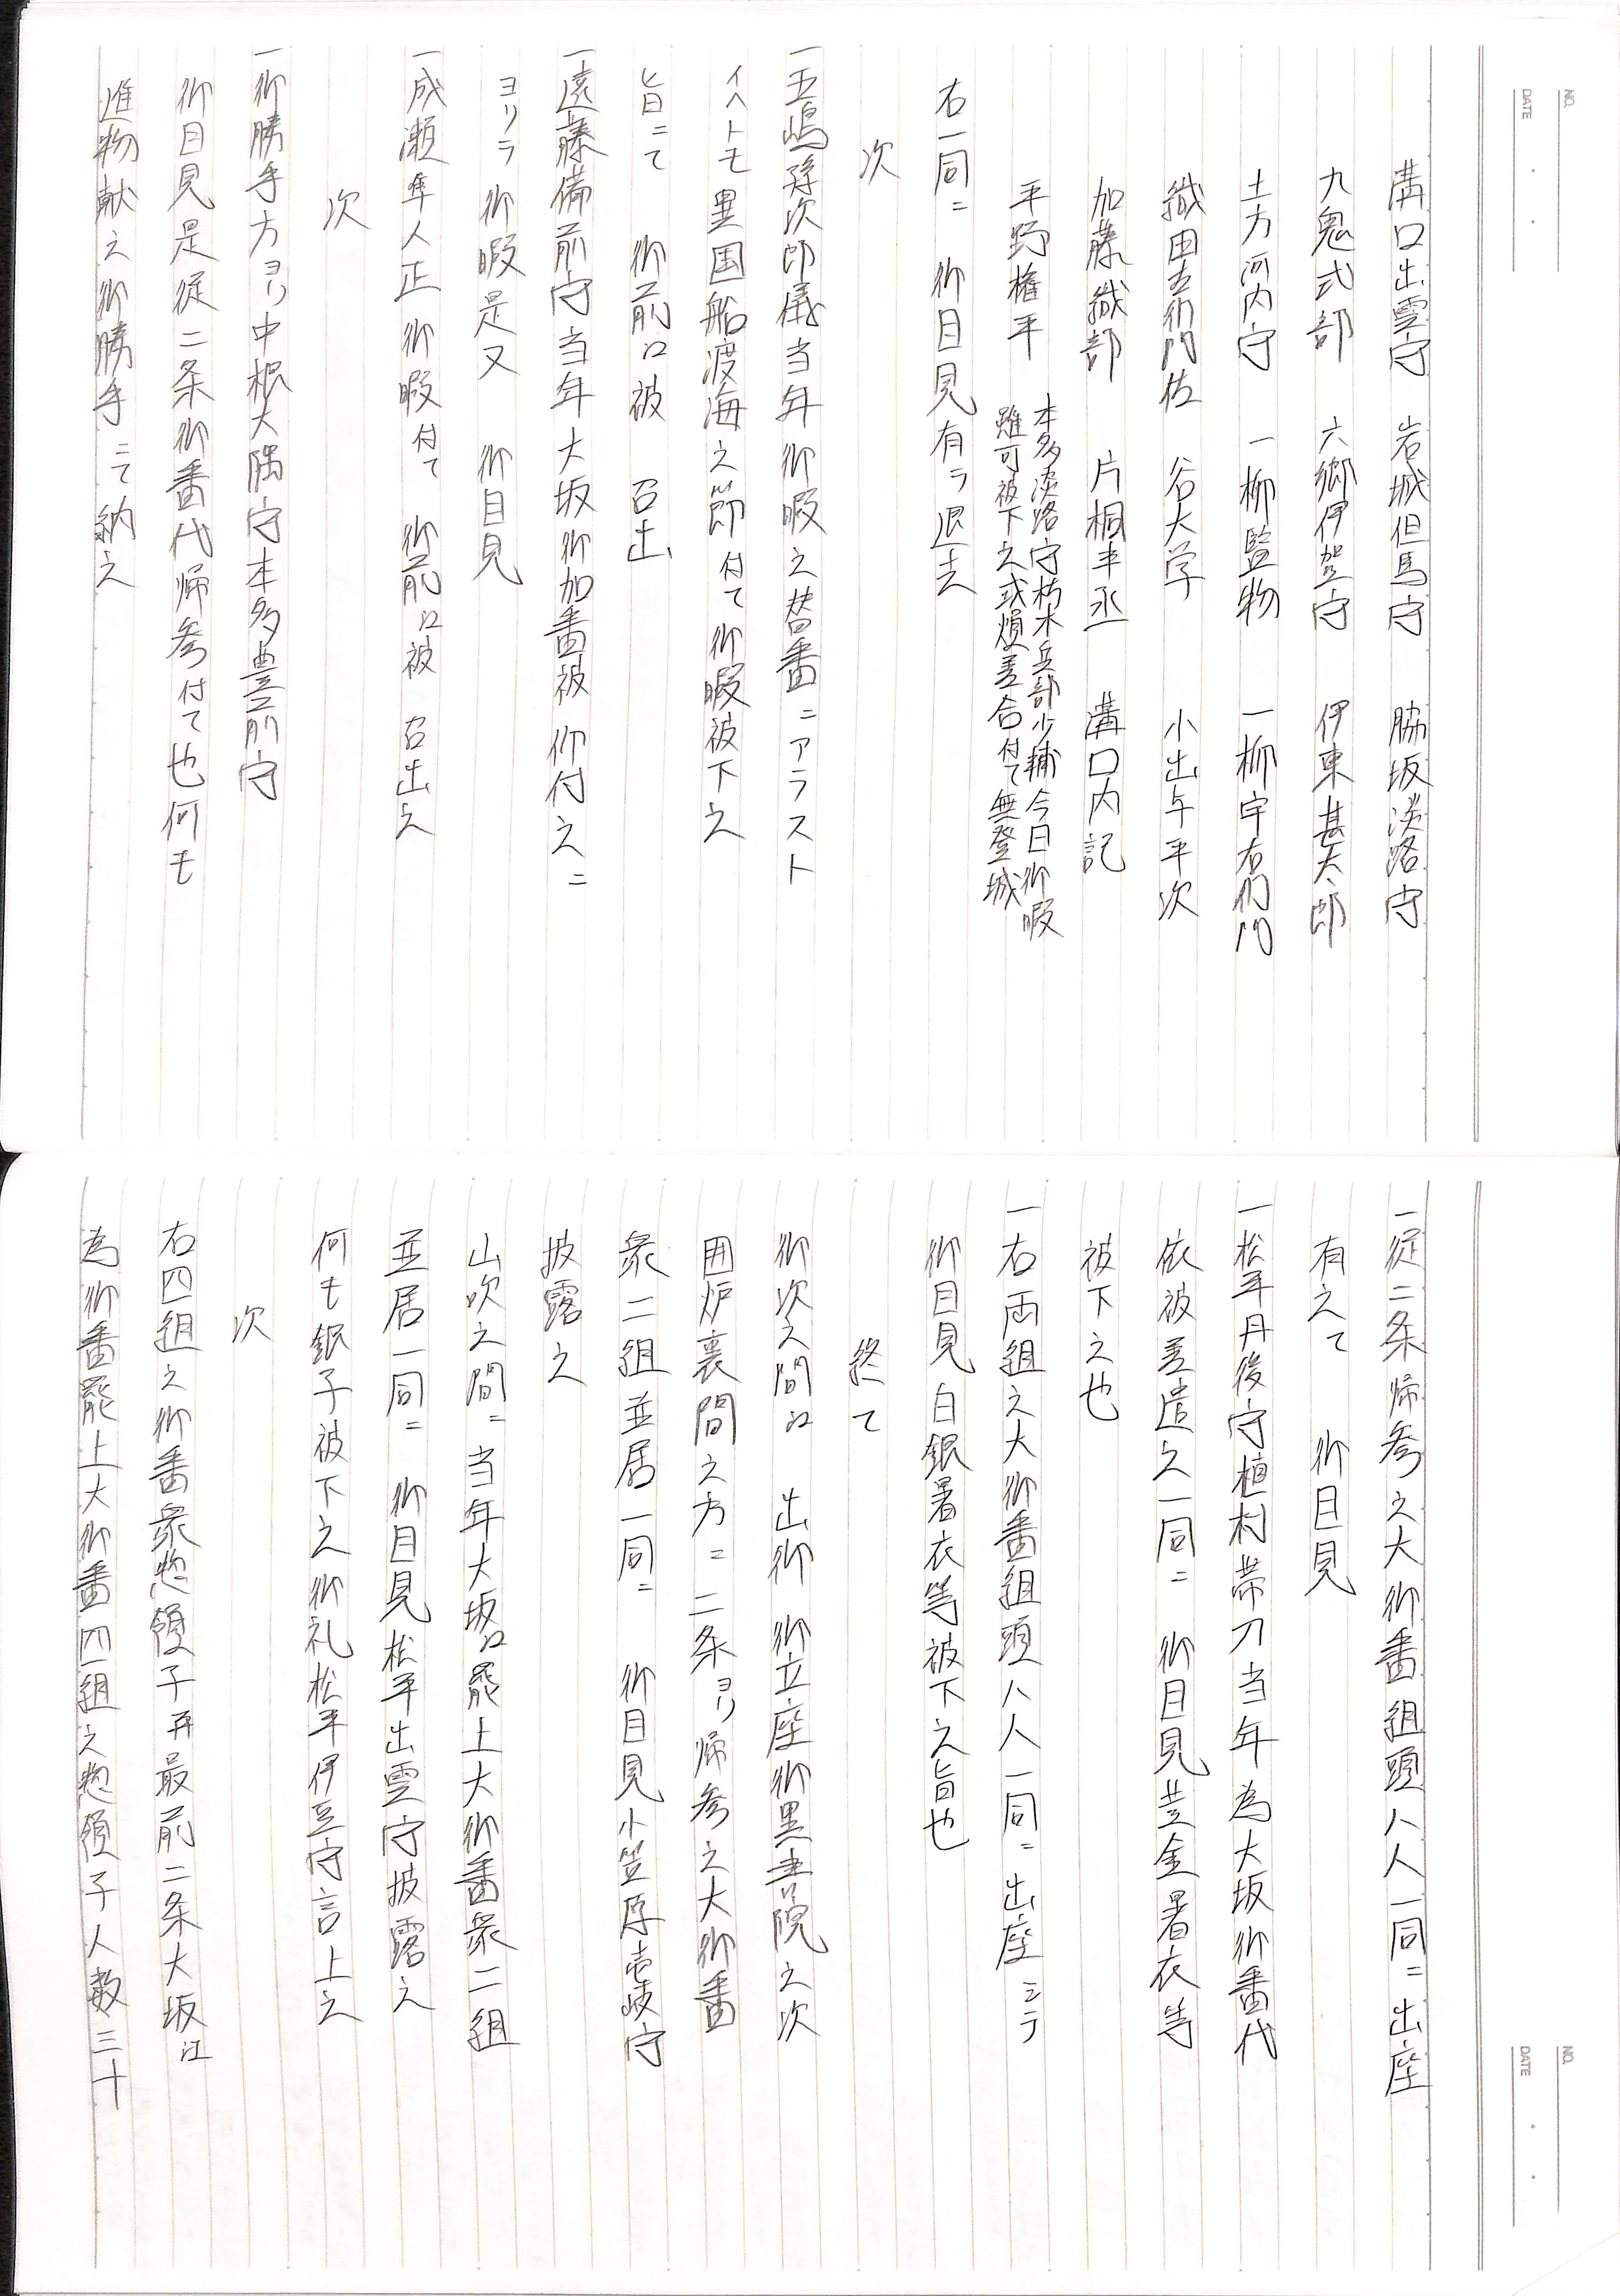 NO.
DATE
溝口出雲守　岩城但馬守　脇坂淡路守
九鬼式部　六郷伊賀守　伊東甚太郎
土方河内守　一柳監物　一柳宇右衛門
織田左衛門佐　谷大学　小出与平次
加藤織部　片桐半丞　溝口内記
平野権平　本多淡路守朽木兵部少輔今日御暇
雖可被下之或煩差合付て無登城
右一同ニ　御目見有テ退去
次
一五嶋孫次郎儀当年御暇之替番ニアラスト
イヘトモ異国船渡海之節付て御暇被下之
旨ニて　御前江被　召出
一遠藤備前守当年大坂御加番被　仰付之ニ
ヨリテ　御暇是又　御目見
一成瀬隼人正御暇付て　御前江被　召出之
次
一御勝手方ヨリ中根大隅守本多豊前守
御目見是従二条御番代帰参付て也何モ
進物献之御勝手ニて納之
NO.
DATE
一従二条帰参之大御番組頭八人一同ニ出座
有之て　御目見
一松平丹後守植村帯刀当年為大坂御番代
依被差遣之一同ニ　御目見黄金暑衣等
被下之也
一右両組之大御番組頭八人一同ニ出座シテ
御目見白銀暑衣等被下之旨也
終て
御次之間江　出御　御立座御黒書院之次
囲炉裏間之方ニ二条ヨリ帰参之大御番
衆二組並居一同ニ　御目見小笠原壱岐守
披露之
山吹之間ニ当年大坂江罷上大御番衆二組
並居一同ニ　御目見松平出雲守披露之
何モ銀子被下之御礼松平伊豆守言上之
次
右四組之御番衆惣領子再最前二条大坂江
為御番罷上大御番四組之惣領子人数三十